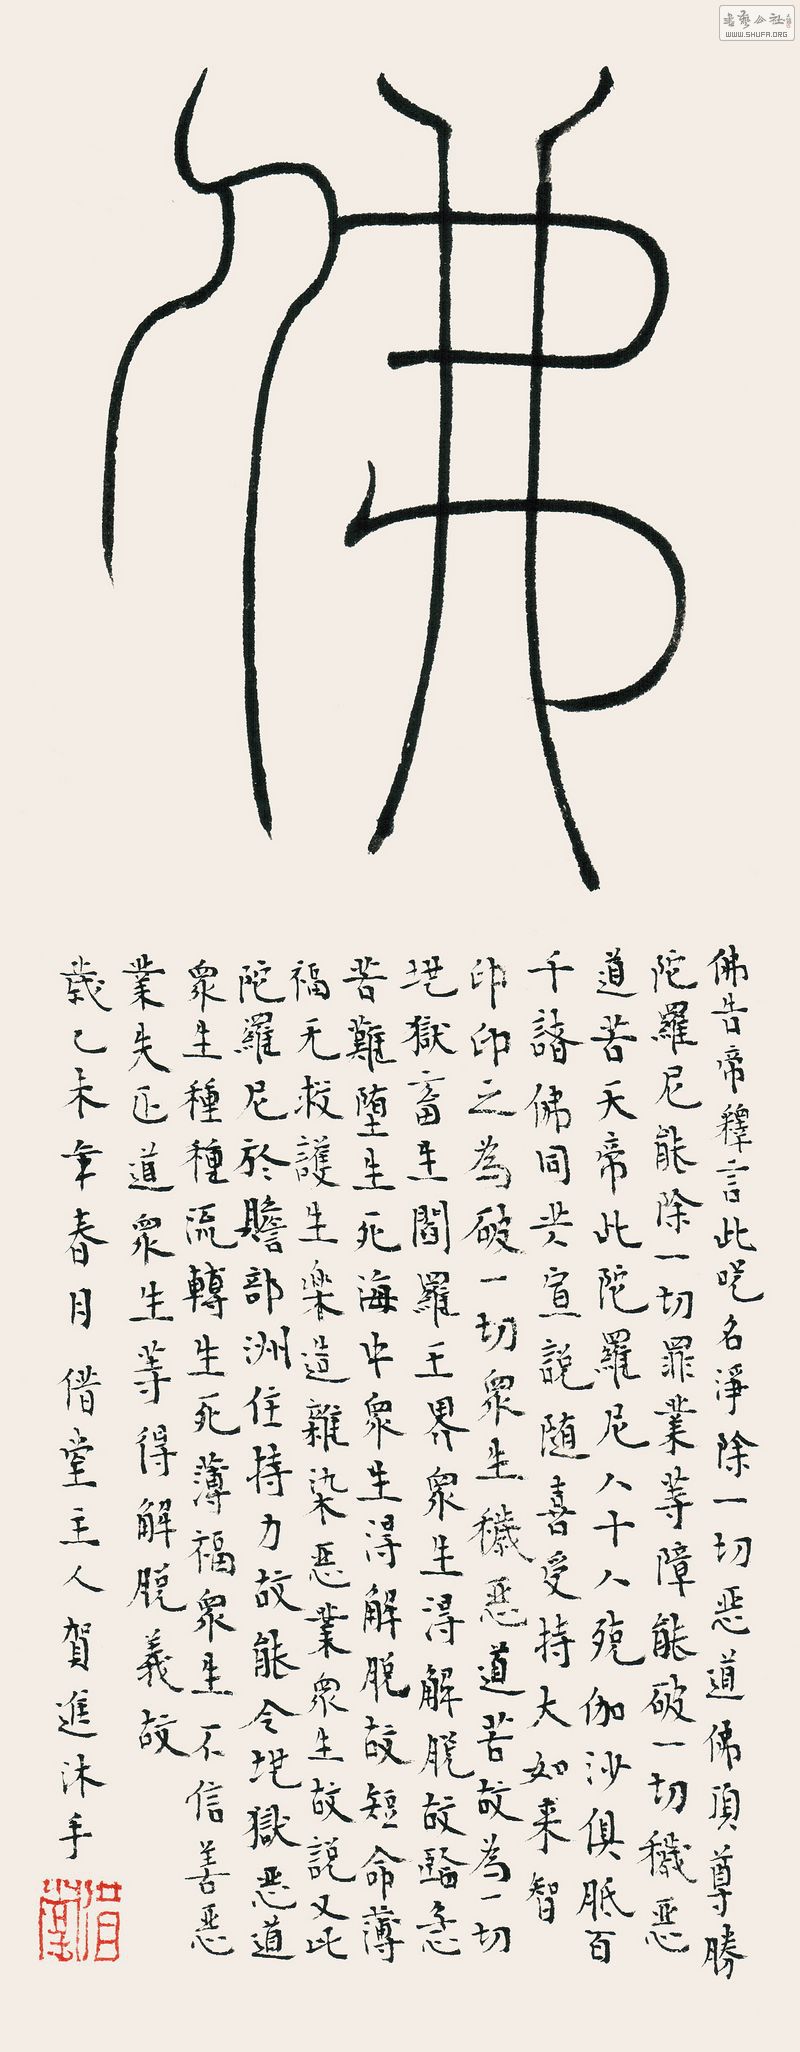 書藝公社
WWW.SHUFA.ORG
佛
佛告帝釋言此呪名淨除一切惡道佛頂尊勝
陀羅尼能除一切罪業等障能破一切穢惡
道苦天帝此陀羅尼八十八殑伽沙俱胝百
千諸佛同共宣說随喜受持大如来智
印印之為破一切眾生穢惡道苦故為一切
地獄畜生閻羅王界眾生得解脫故臨急
苦難墮生死海中眾生得解脫故短命薄
福无救護生樂造雜染惡業眾生故說又此
陀羅尼於贍部洲住持力故能令地獄惡道
眾生種種流轉生死薄福眾生不信善惡
業失正道眾生等得解脫義故
歲乙未年春月借堂主人賀進沐手
借堂